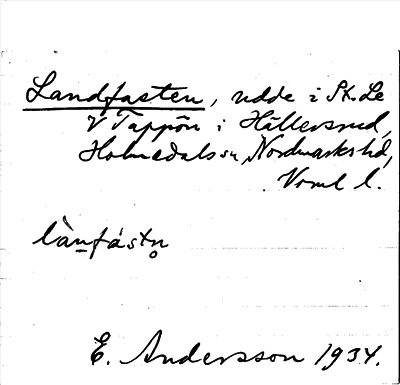 Landfasten, udde i St. Le
V Tappön i Hällersrud,
Holmedals sn, Nordmarks hd,
Vrml l.
làn̲fástn̥
E. Andersson 1934.